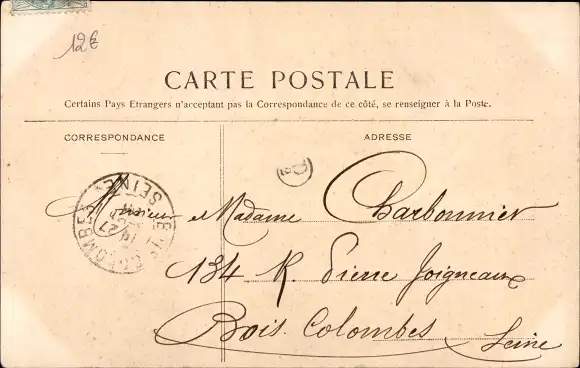 12€
CARTE POSTALE
Certains Pays Etrangers n'acceptant pas la Correspondance de ce côté, se renseigner à la Poste.
CORRESPONDANCE
ADRESSE
Monsieur et Madame Charbonnier
134 R. Pierre Joigneaux
Bois. Colombes Seine
COLOMBES
SEINE